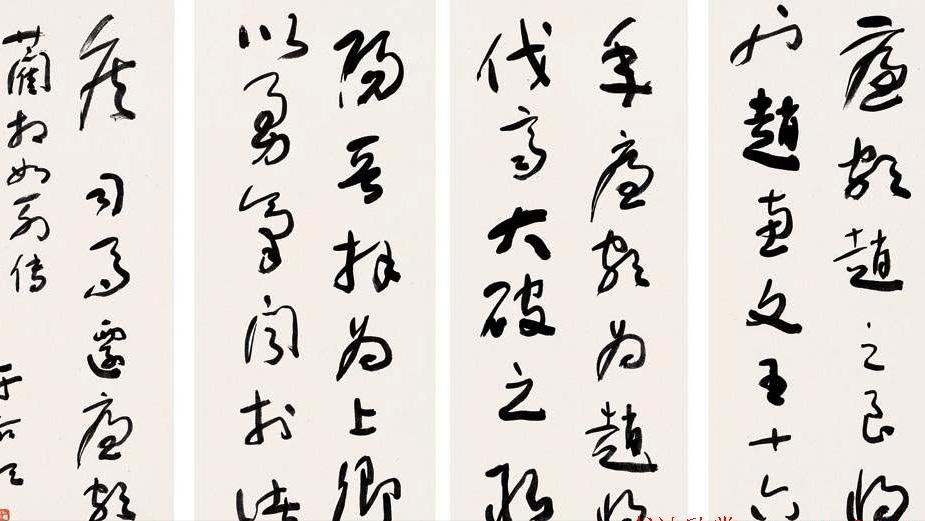 廉頗趙之良將
也趙惠文王十六
年廉頗為趙將
伐齊大破之取
陽晉拜為上卿
以勇氣聞於諸
侯司馬遷廉頗
藺相如列傳
于右任